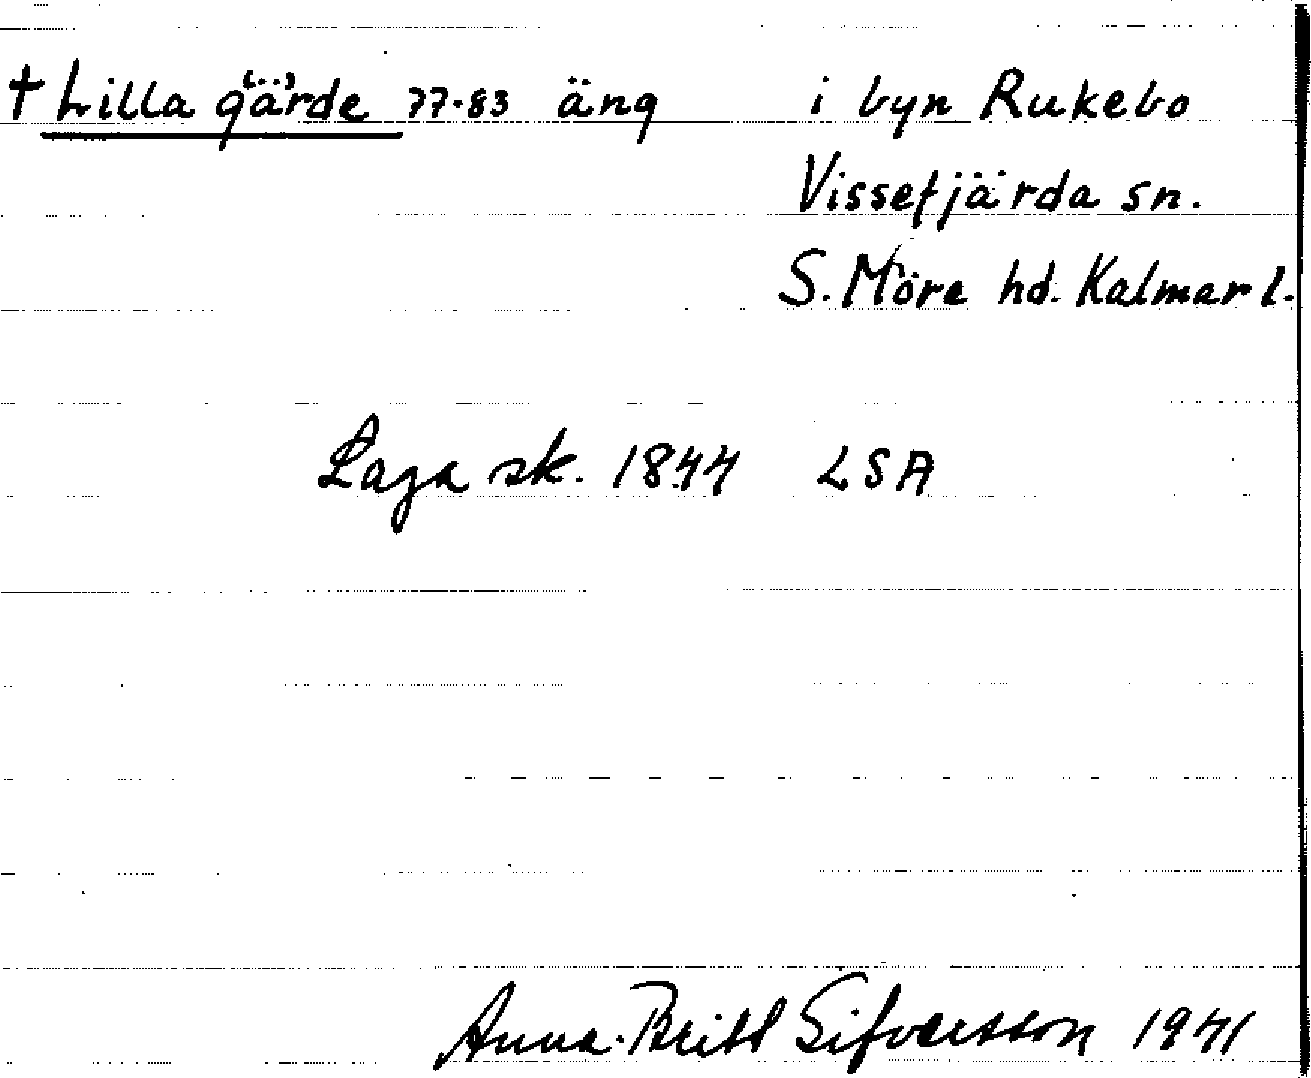 † Lilla gärde 77-83 äng i byn Rukebo
Vissefjärda sn.
S. Möre hd. Kalmar l.
Laga sk. 1844 LSA
Anna-Britt Sifvertsson 1941